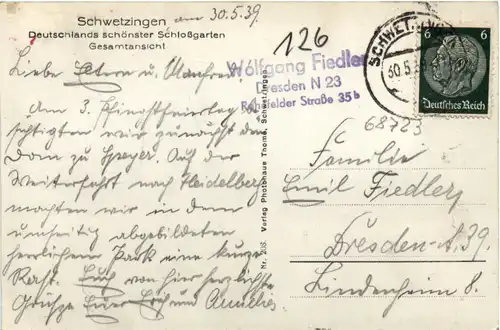 Schwetzingen, am 30.5.39.
Deutschlands schönster Schloßgarten
Gesamtansicht
Liebe Eltern u. Manfred!
Am 3. Pfingstfeiertag be-
sichtigten wir zunächst den
Dom zu Speyer. Auf der
Weiterfahrt nach Heidelberg
machten wir in dem
umseitig abgebildeten
herrlichen Park eine kurze
Rast. Euch von hier herzlichste
Grüße Euer Erich und Annelies
Nr. 218. Verlag Photohaus Thome, Schwetzingen
126
Wolfgang Fiedler
Dresden N 23
Straße 35 b
SCHWETZINGEN
30.5.
6 6
Deutsches Reich
68723
Familie
Emil Fiedler
Dresden-A. 39.
Lindenheim 8.